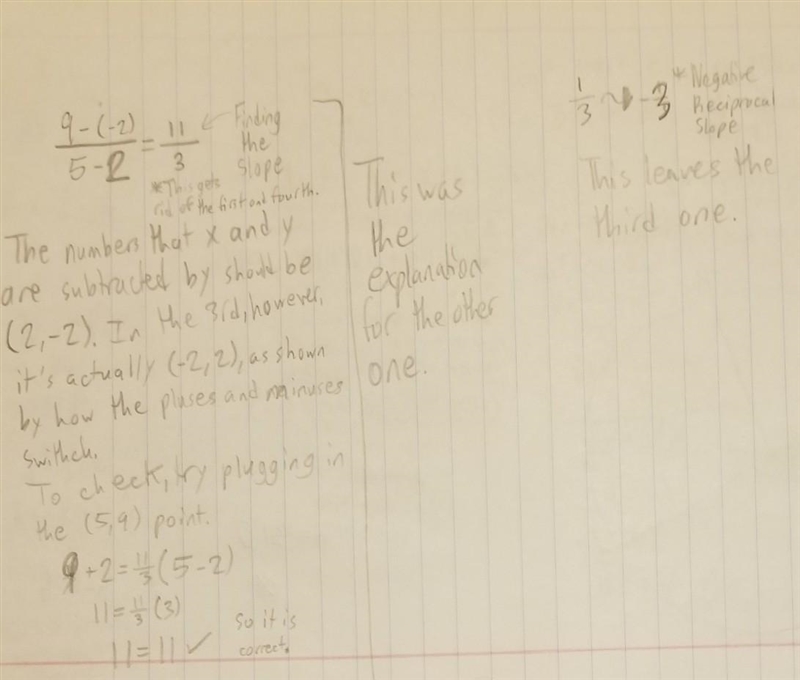 9-(-2)/5-2 = 11/3 ← Finding
the
slope
*This gets
rid of the first and fourth.
The numbers that x and y
are subtracted by should be
(2,-2). In the 3rd, however,
it's actually (-2,2), as shown
by how the pluses and minuses
swithch.
To check, try plugging in
the (5,9) point.
9+2=11/3(5-2)
11=11/3(3)
11=11✓
So it is
correct.
This was
the
explanation
for the other
one.
1/3 → -3
*Negative
Reciprocal
Slope
This leaves the
third one.